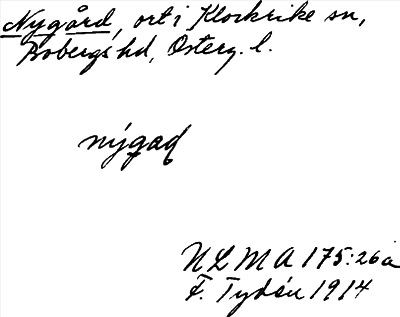 Nygård, ort i Klockrike sn,
Bobergs hd, Österg. l.
nýgaɖ
N L M A 175:26a
F. Tydén 1914